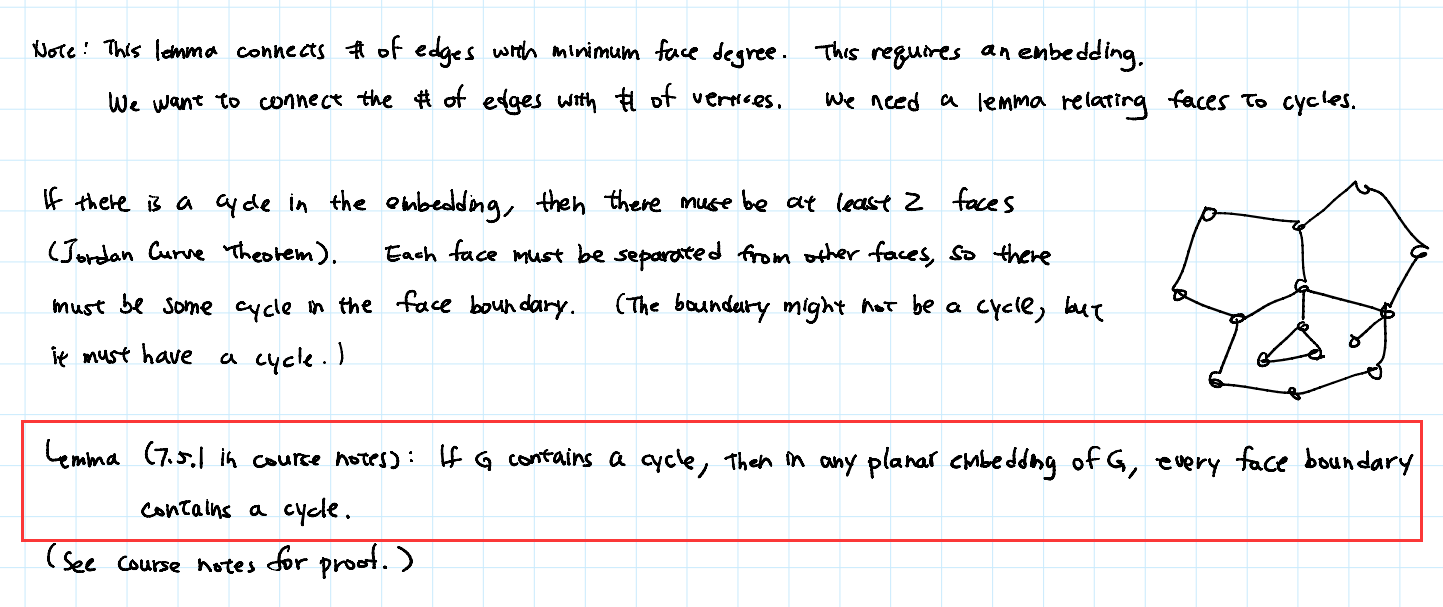 Note: This lemma connects # of edges with minimum face degree. This requires an embedding.
We want to connect the # of edges with # of vertices. We need a lemma relating faces to cycles.
If there is a cycle in the embedding, then there must be at least 2 faces
(Jordan Curve Theorem). Each face must be separated from other faces, so there
must be some cycle in the face boundary. (The boundary might not be a cycle, but
it must have a cycle.)
Lemma (7.5.1 in course notes): If G contains a cycle, then in any planar embedding of G, every face boundary
contains a cycle.
(See course notes for proof.)